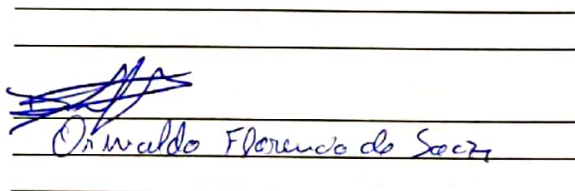 Orivaldo Florencio de Souza